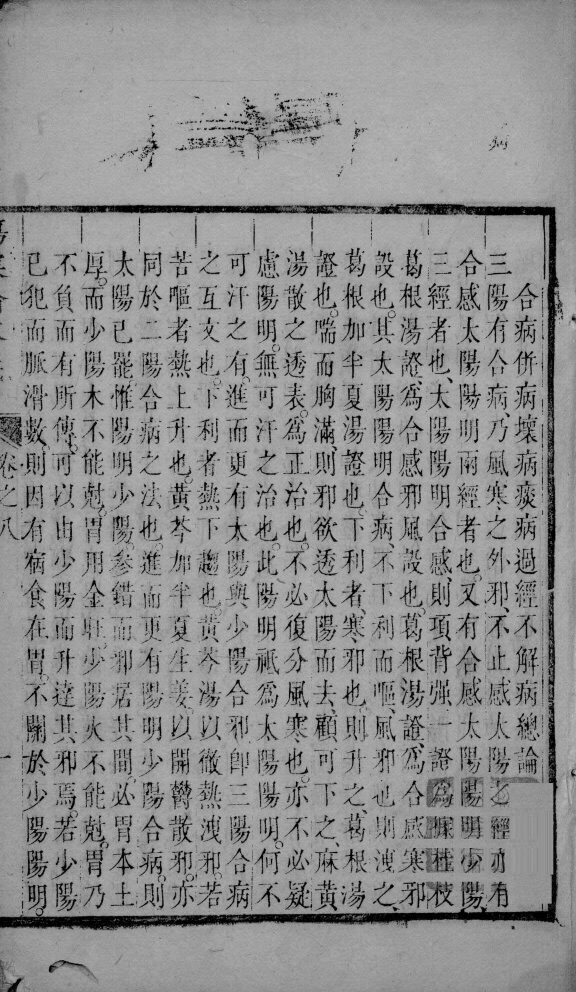 合病併病壞病痰病過經不解病總論
三陽有合病乃風寒之外邪不止感太陽之經亦有
合感太陽陽明兩經者也又有合感太陽陽明少陽
三經者也太陽陽明合感則項背强一證為 桂枝
葛根湯證為合感邪風設也葛根湯證為合感寒邪
設也其太陽陽明合病不下利而嘔風邪也則洩之
葛根加半夏湯證也下利者寒邪也則升之葛根湯
證也喘而胸滿則邪欲透太陽而去顧可下之麻黃
湯散之透表為正治也不必復分風寒也亦不必疑
慮陽明無可汗之治也此陽明祇為太陽陽明何不
可汗之有進而更有太陽與少陽合邪卽三陽合病
之互文也下利者熱下趨也黃芩湯以徹熱洩邪若
苦嘔者熱上升也黃芩加半夏生姜以開鬱散邪亦
同於二陽合病之法也進而更有陽明少陽合病則
太陽已罷惟陽明少陽參錯而邪居其間必胃本土
厚而少陽木不能尅胃用金旺少陽火不能尅胃乃
不負而有所傳可以由少陽而升達其邪焉若少陽
已犯而脈滑數則因有宿食在胃不關於少陽陽明
卷之八
一